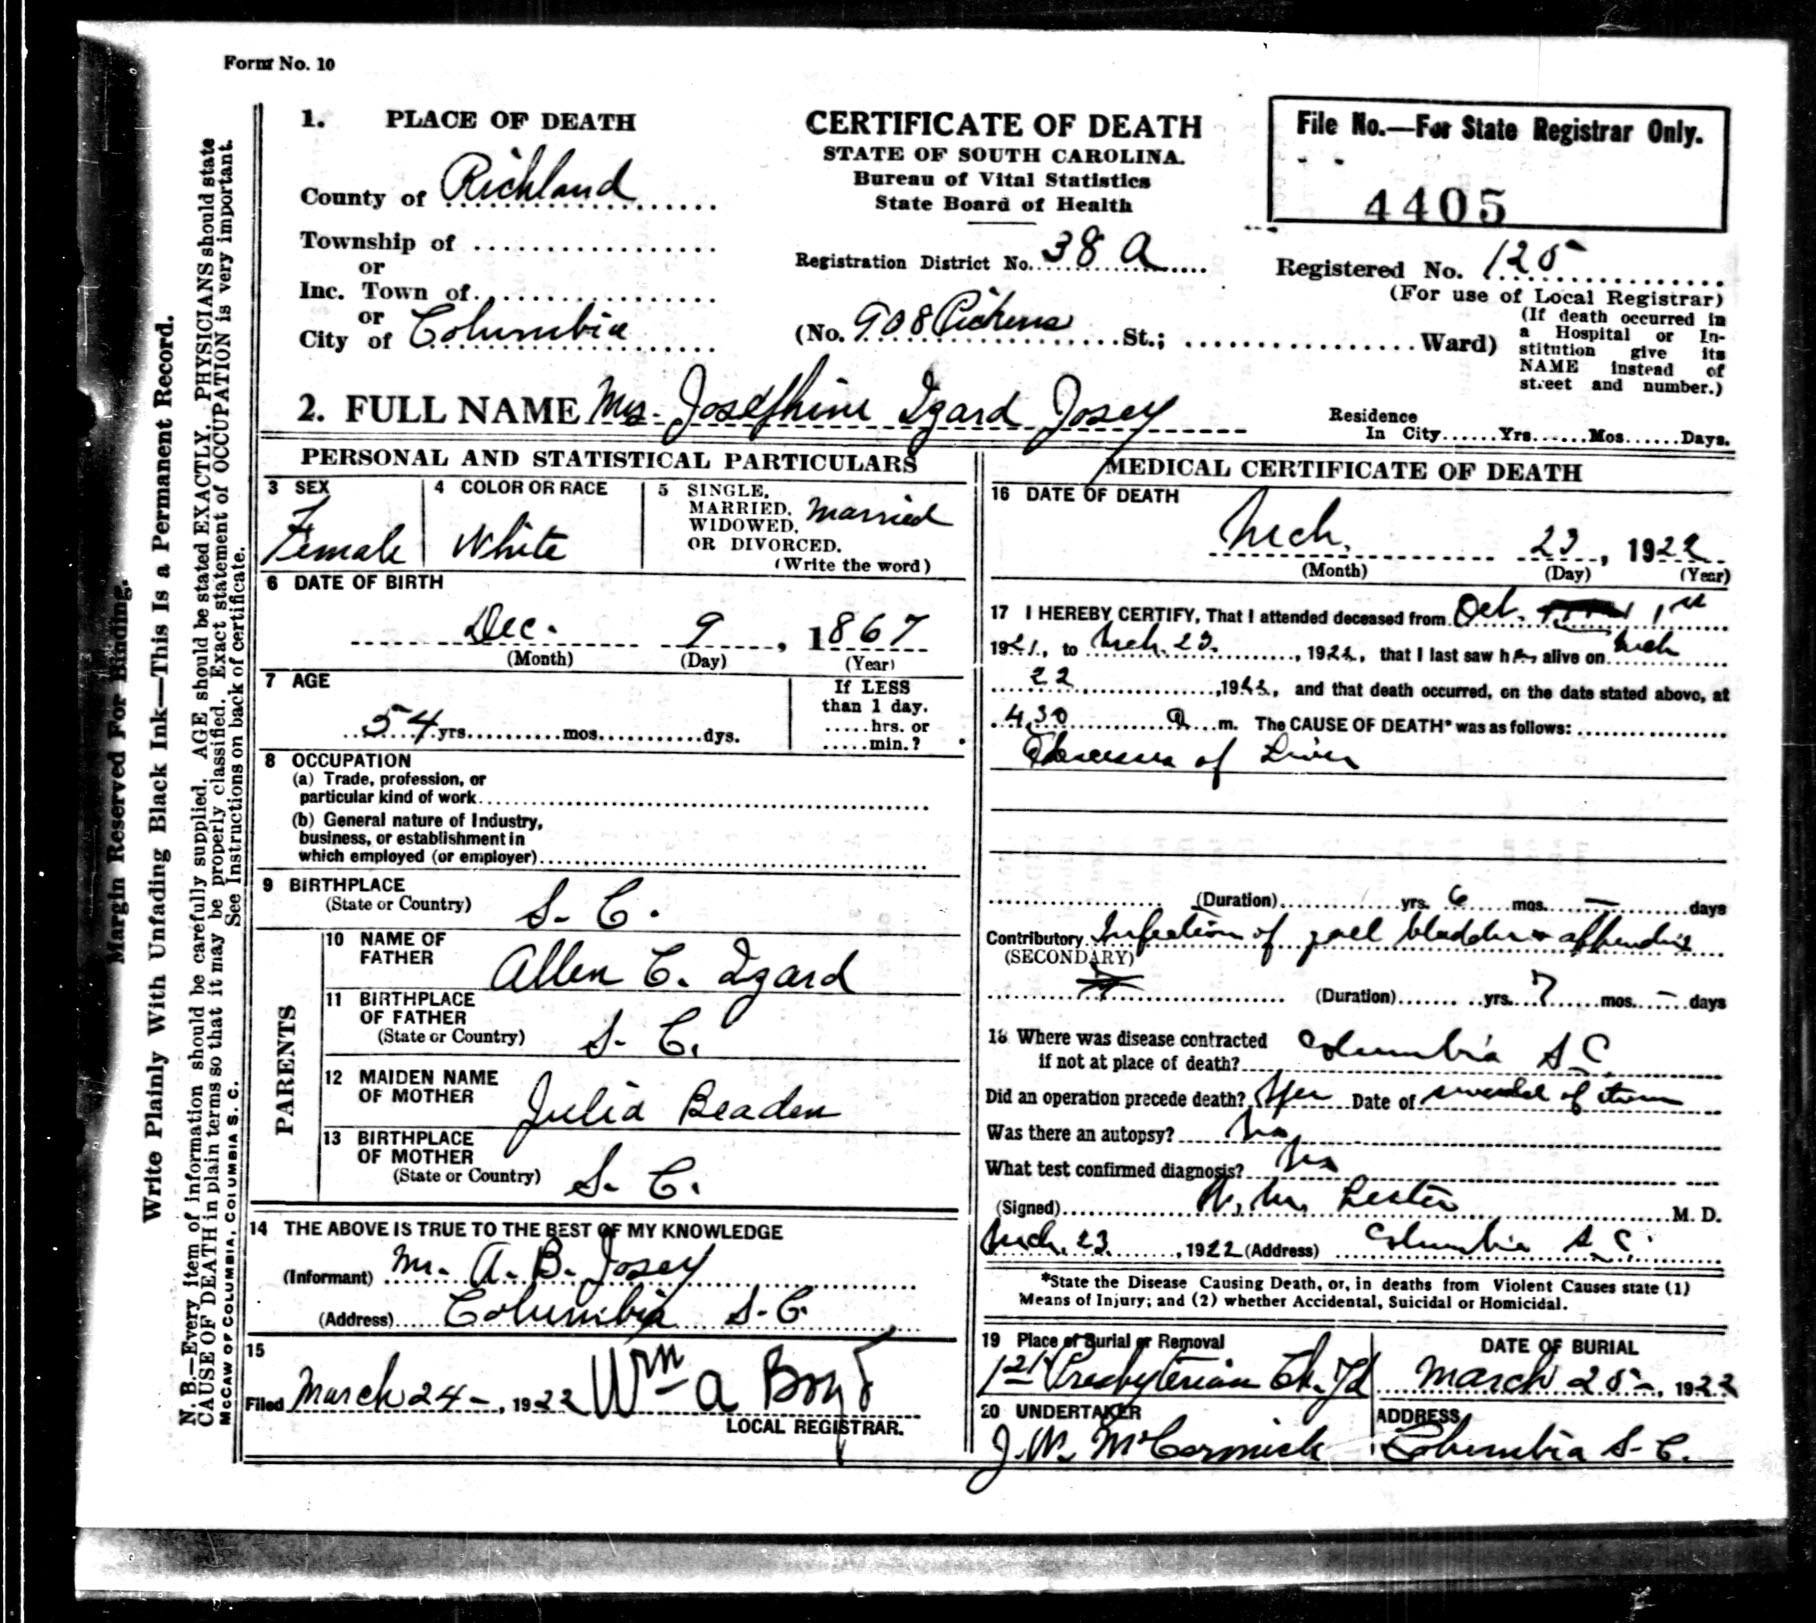 Form No. 10
1. PLACE OF DEATH
County of Richland
Township of
or
Inc. Town of
or
City of Columbia
CERTIFICATE OF DEATH
STATE OF SOUTH CAROLINA.
Bureau of Vital Statistics
State Board of Health
Registration District No. 38 A
(No. 908 Pickens St.; Ward)
File No.—For State Registrar Only.
4405
Registered No. 125
(For use of Local Registrar)
(If death occurred in
a Hospital or In-
stitution give its
NAME instead of
street and number.)
2. FULL NAME Mrs. Josephine Izard Josey
Residence
In City......Yrs......Mos......Days.
PERSONAL AND STATISTICAL PARTICULARS
3 SEX
Female
4 COLOR OR RACE
White
5 SINGLE,
MARRIED,
WIDOWED,
OR DIVORCED.
(Write the word)
Married
6 DATE OF BIRTH
Dec. 9, 1867
(Month) (Day) (Year)
7 AGE
54 yrs. mos. dys.
If LESS
than 1 day.
hrs. or
min.?
8 OCCUPATION
(a) Trade, profession, or
particular kind of work
(b) General nature of Industry,
business, or establishment in
which employed (or employer)
9 BIRTHPLACE
(State or Country) S. C.
PARENTS
10 NAME OF
FATHER Allen C. Izard
11 BIRTHPLACE
OF FATHER
(State or Country) S. C.
12 MAIDEN NAME
OF MOTHER Julia Beaden
13 BIRTHPLACE
OF MOTHER
(State or Country) S. C.
14 THE ABOVE IS TRUE TO THE BEST OF MY KNOWLEDGE
(Informant) Mr. A. B. Josey
(Address) Columbia S. C.
15
Filed March 24-, 1922 Wm A Boyd
LOCAL REGISTRAR.
MEDICAL CERTIFICATE OF DEATH
16 DATE OF DEATH
Mch. 23, 1922
(Month) (Day) (Year)
17 I HEREBY CERTIFY, That I attended deceased from Oct. 1st
1921, to Mch. 23, 1922, that I last saw her alive on Mch
22, 1922, and that death occurred, on the date stated above, at
4.30 a m. The CAUSE OF DEATH* was as follows:
Abscesses of Liver
(Duration) yrs. 6 mos. — days
Contributory Infection of gall bladder & appendix
(SECONDARY)
(Duration) yrs. 7 mos. — days
18 Where was disease contracted
if not at place of death? Columbia S C
Did an operation precede death? Yes Date of several of them
Was there an autopsy? No
What test confirmed diagnosis? Yes
(Signed) Lester M. D.
Mch. 23, 1922 (Address) Columbia S. C.
*State the Disease Causing Death, or, in deaths from Violent Causes state (1)
Means of Injury; and (2) whether Accidental, Suicidal or Homicidal.
19 Place of Burial or Removal
1st Presbyterian Ch. Yd
DATE OF BURIAL
March 25-, 1922
20 UNDERTAKER
J. W. McCormick
ADDRESS
Columbia S. C.
Margin Reserved For Binding.
Write Plainly With Unfading Black Ink—This Is a Permanent Record.
N. B.—Every item of information should be carefully supplied. AGE should be stated EXACTLY. PHYSICIANS should state
CAUSE OF DEATH in plain terms so that it may be properly classified. Exact statement of OCCUPATION is very important.
See Instructions on back of certificate.
MCCAW OF COLUMBIA, COLUMBIA S. C.